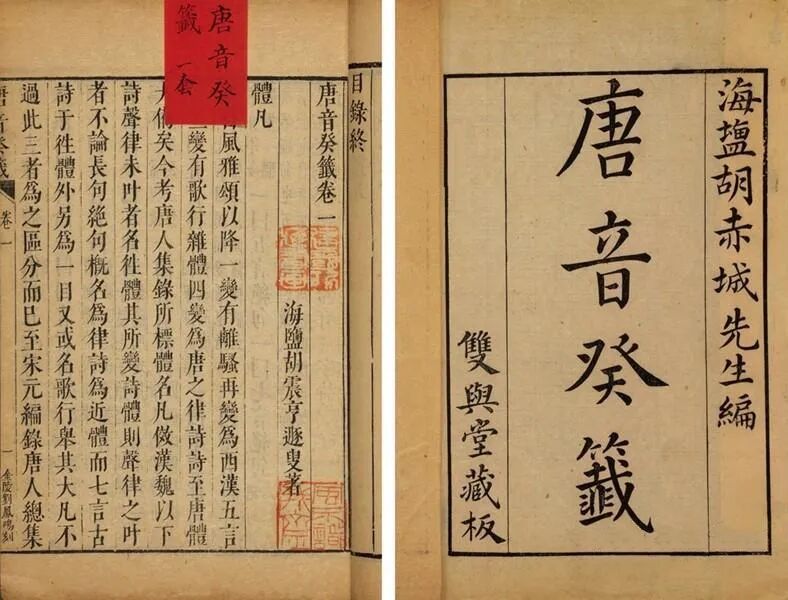 海塩胡赤城先生編
唐音癸籤
雙與堂藏板
目錄終
唐音癸
籤 一套
唐音癸籤卷一
海鹽胡震亨遯叟著
體凡
風雅頌以降一變有離騷再變爲西漢五言
變有歌行雜體四變爲唐之律詩詩至唐體
大備矣今考唐人集錄所標體名凡倣漢魏以下
詩聲律未叶者名徃體其所變詩體則聲律之叶
者不論長句絕句概名爲律詩爲近體而七言古
詩于徃體外另爲一目又或名歌行舉其大凡不
過此三者爲之區分而已至宋元編錄唐人總集
唐音癸籤 卷一 一 金陵劉鳳鳴刻